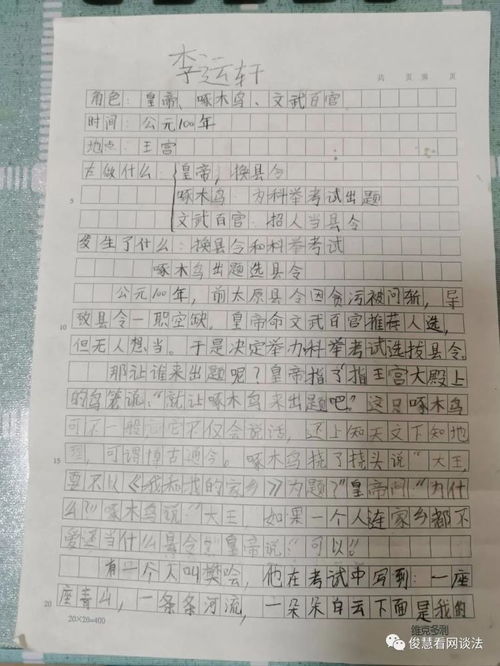 李运轩
共 页 第 页
角色：皇帝、啄木鸟、文武百官
时间：公元100年
地点：王宫
在做什么：皇帝：换县令
啄木鸟：为科举考试出题
5
文武百官：招人当县令
发生了什么：换县令和科举考试
啄木鸟出题选县令
公元100年，前太原县令因贪污被问斩，导
10
致县令一职空缺。皇帝命文武百官推荐人选，
但无人想当。于是决定举办科举考试选拔县令。
那让谁来出题呢？皇帝指了指王宫大殿上
的鸟笼说：“就让啄木鸟来出题吧。”这只啄木鸟
可不一般，它不仅会说话，还上知天文下知地
15
理，可谓博古通今。啄木鸟挠了挠头说“大王，
要不以《我和我的家乡》为题？”皇帝问“为什
么？”啄木鸟说“大王，如果一个人连家乡都不
爱还当什么县令？”皇帝说“可以！”
有一个人叫樊哙，他在考试中写到：一座
20
座青山，一条条河流，一朵朵白云下面是我的
20×20=400
维克多利
俊慧看网谈法